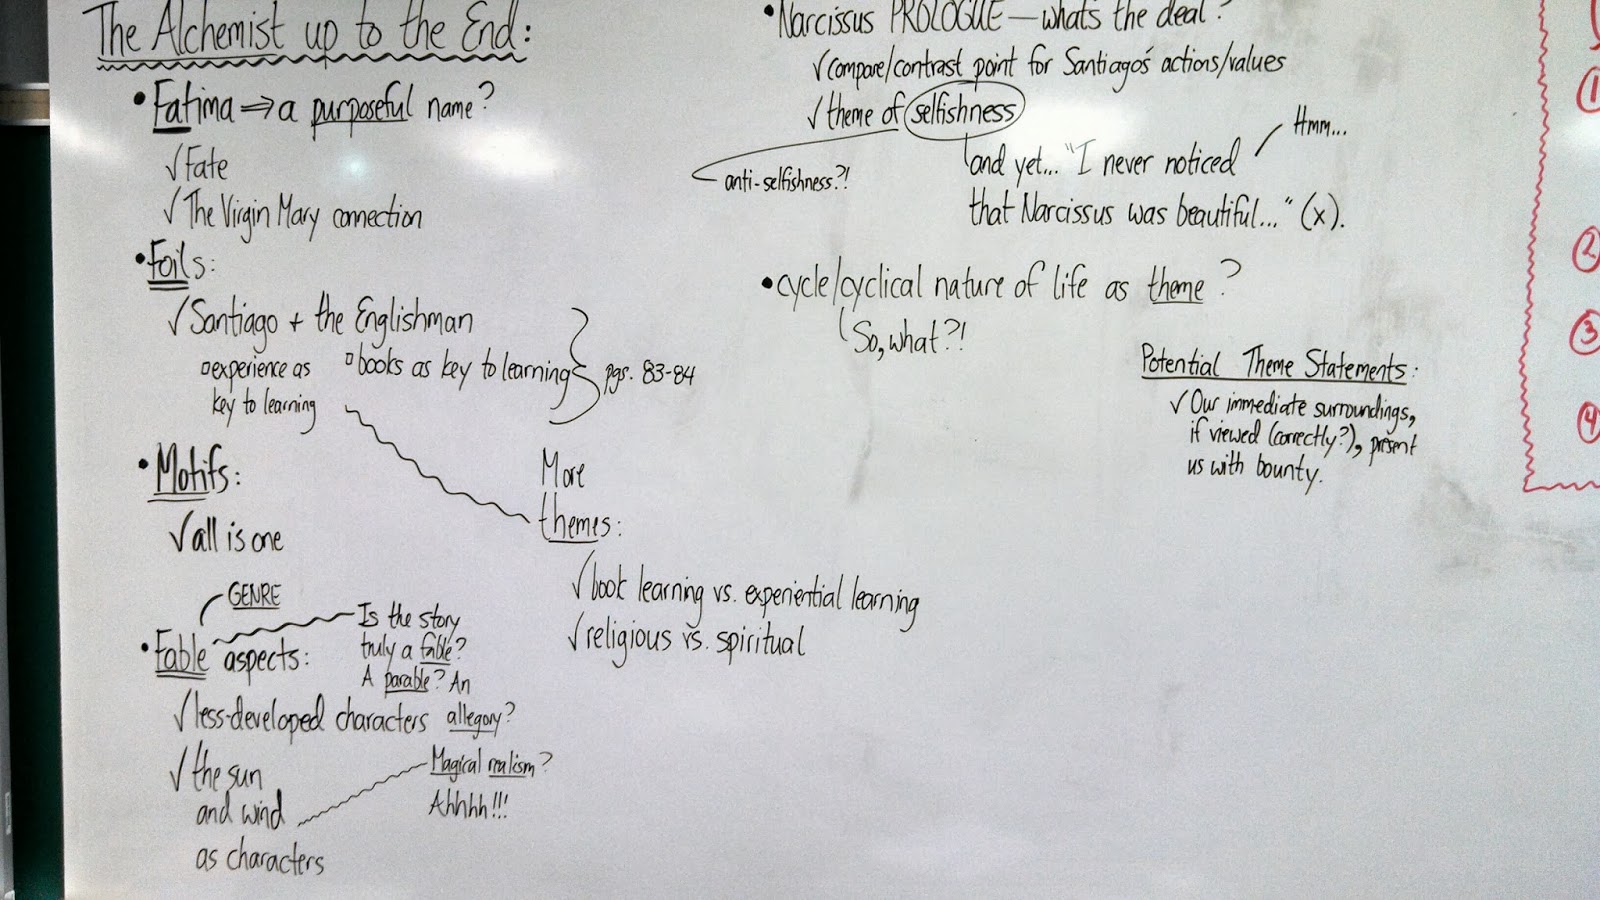 The Alchemist up to the End:
• Fatima ⇒ a purposeful name?
✓ Fate
✓ The Virgin Mary connection
• Foils:
✓ Santiago + the Englishman
experience as
key to learning
books as key to learning
pgs. 83-84
• Motifs:
✓ all is one
More
themes:
✓ book learning vs. experiential learning
✓ religious vs. spiritual
GENRE
• Fable aspects:
Is the story
truly a fable?
A parable? An
allegory?
✓ less-developed characters
✓ the sun
and wind
as characters
Magical realism?
Ahhhh!!!
• Narcissus PROLOGUE — whats the deal?
✓ compare/contrast point for Santiago's actions/values
✓ theme of selfishness
anti-selfishness?!
Hmm...
and yet... "I never noticed
that Narcissus was beautiful..." (x).
• cycle/cyclical nature of life as theme?
So, what?!
Potential Theme Statements:
✓ Our immediate surroundings,
if viewed (correctly?), present
us with bounty.
1
2
3
4